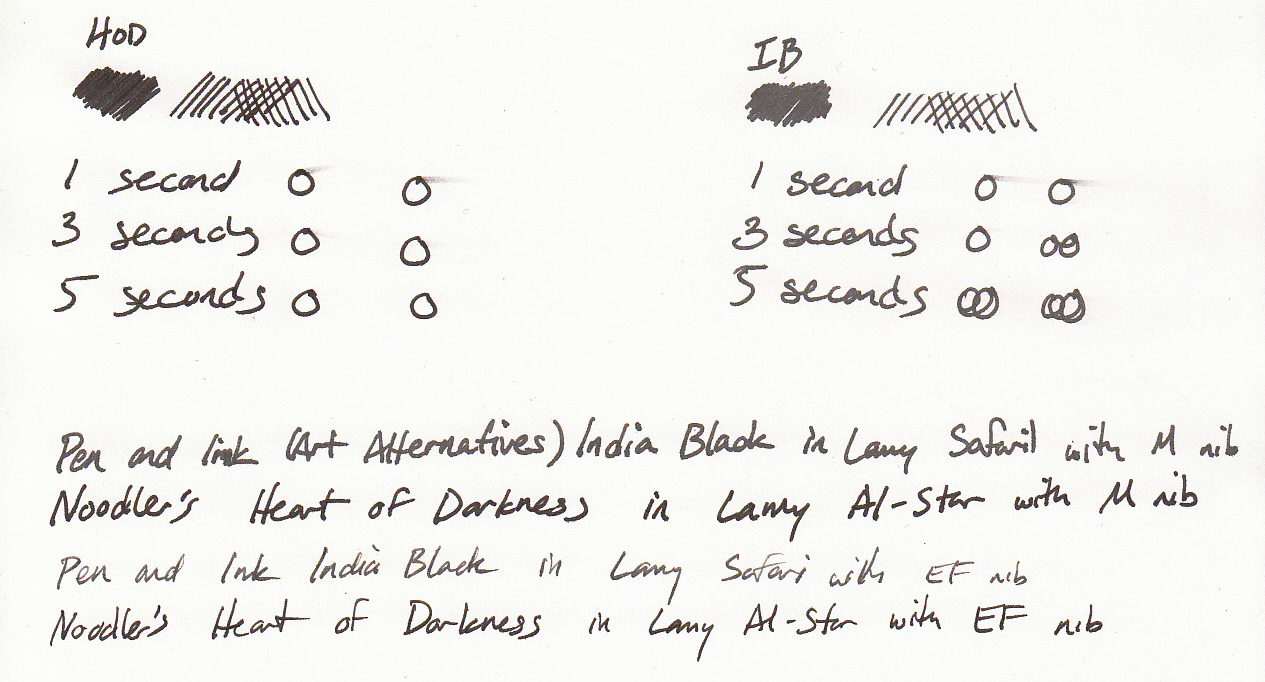 HoD
1 second
3 seconds
5 seconds
IB
1 second
3 seconds
5 seconds
Pen and Ink (Art Alternatives) India Black in Lamy Safari with M nib
Noodler's Heart of Darkness in Lamy Al-Star with M nib
Pen and Ink India Black in Lamy Safari with EF nib
Noodler's Heart of Darkness in Lamy Al-Star with EF nib